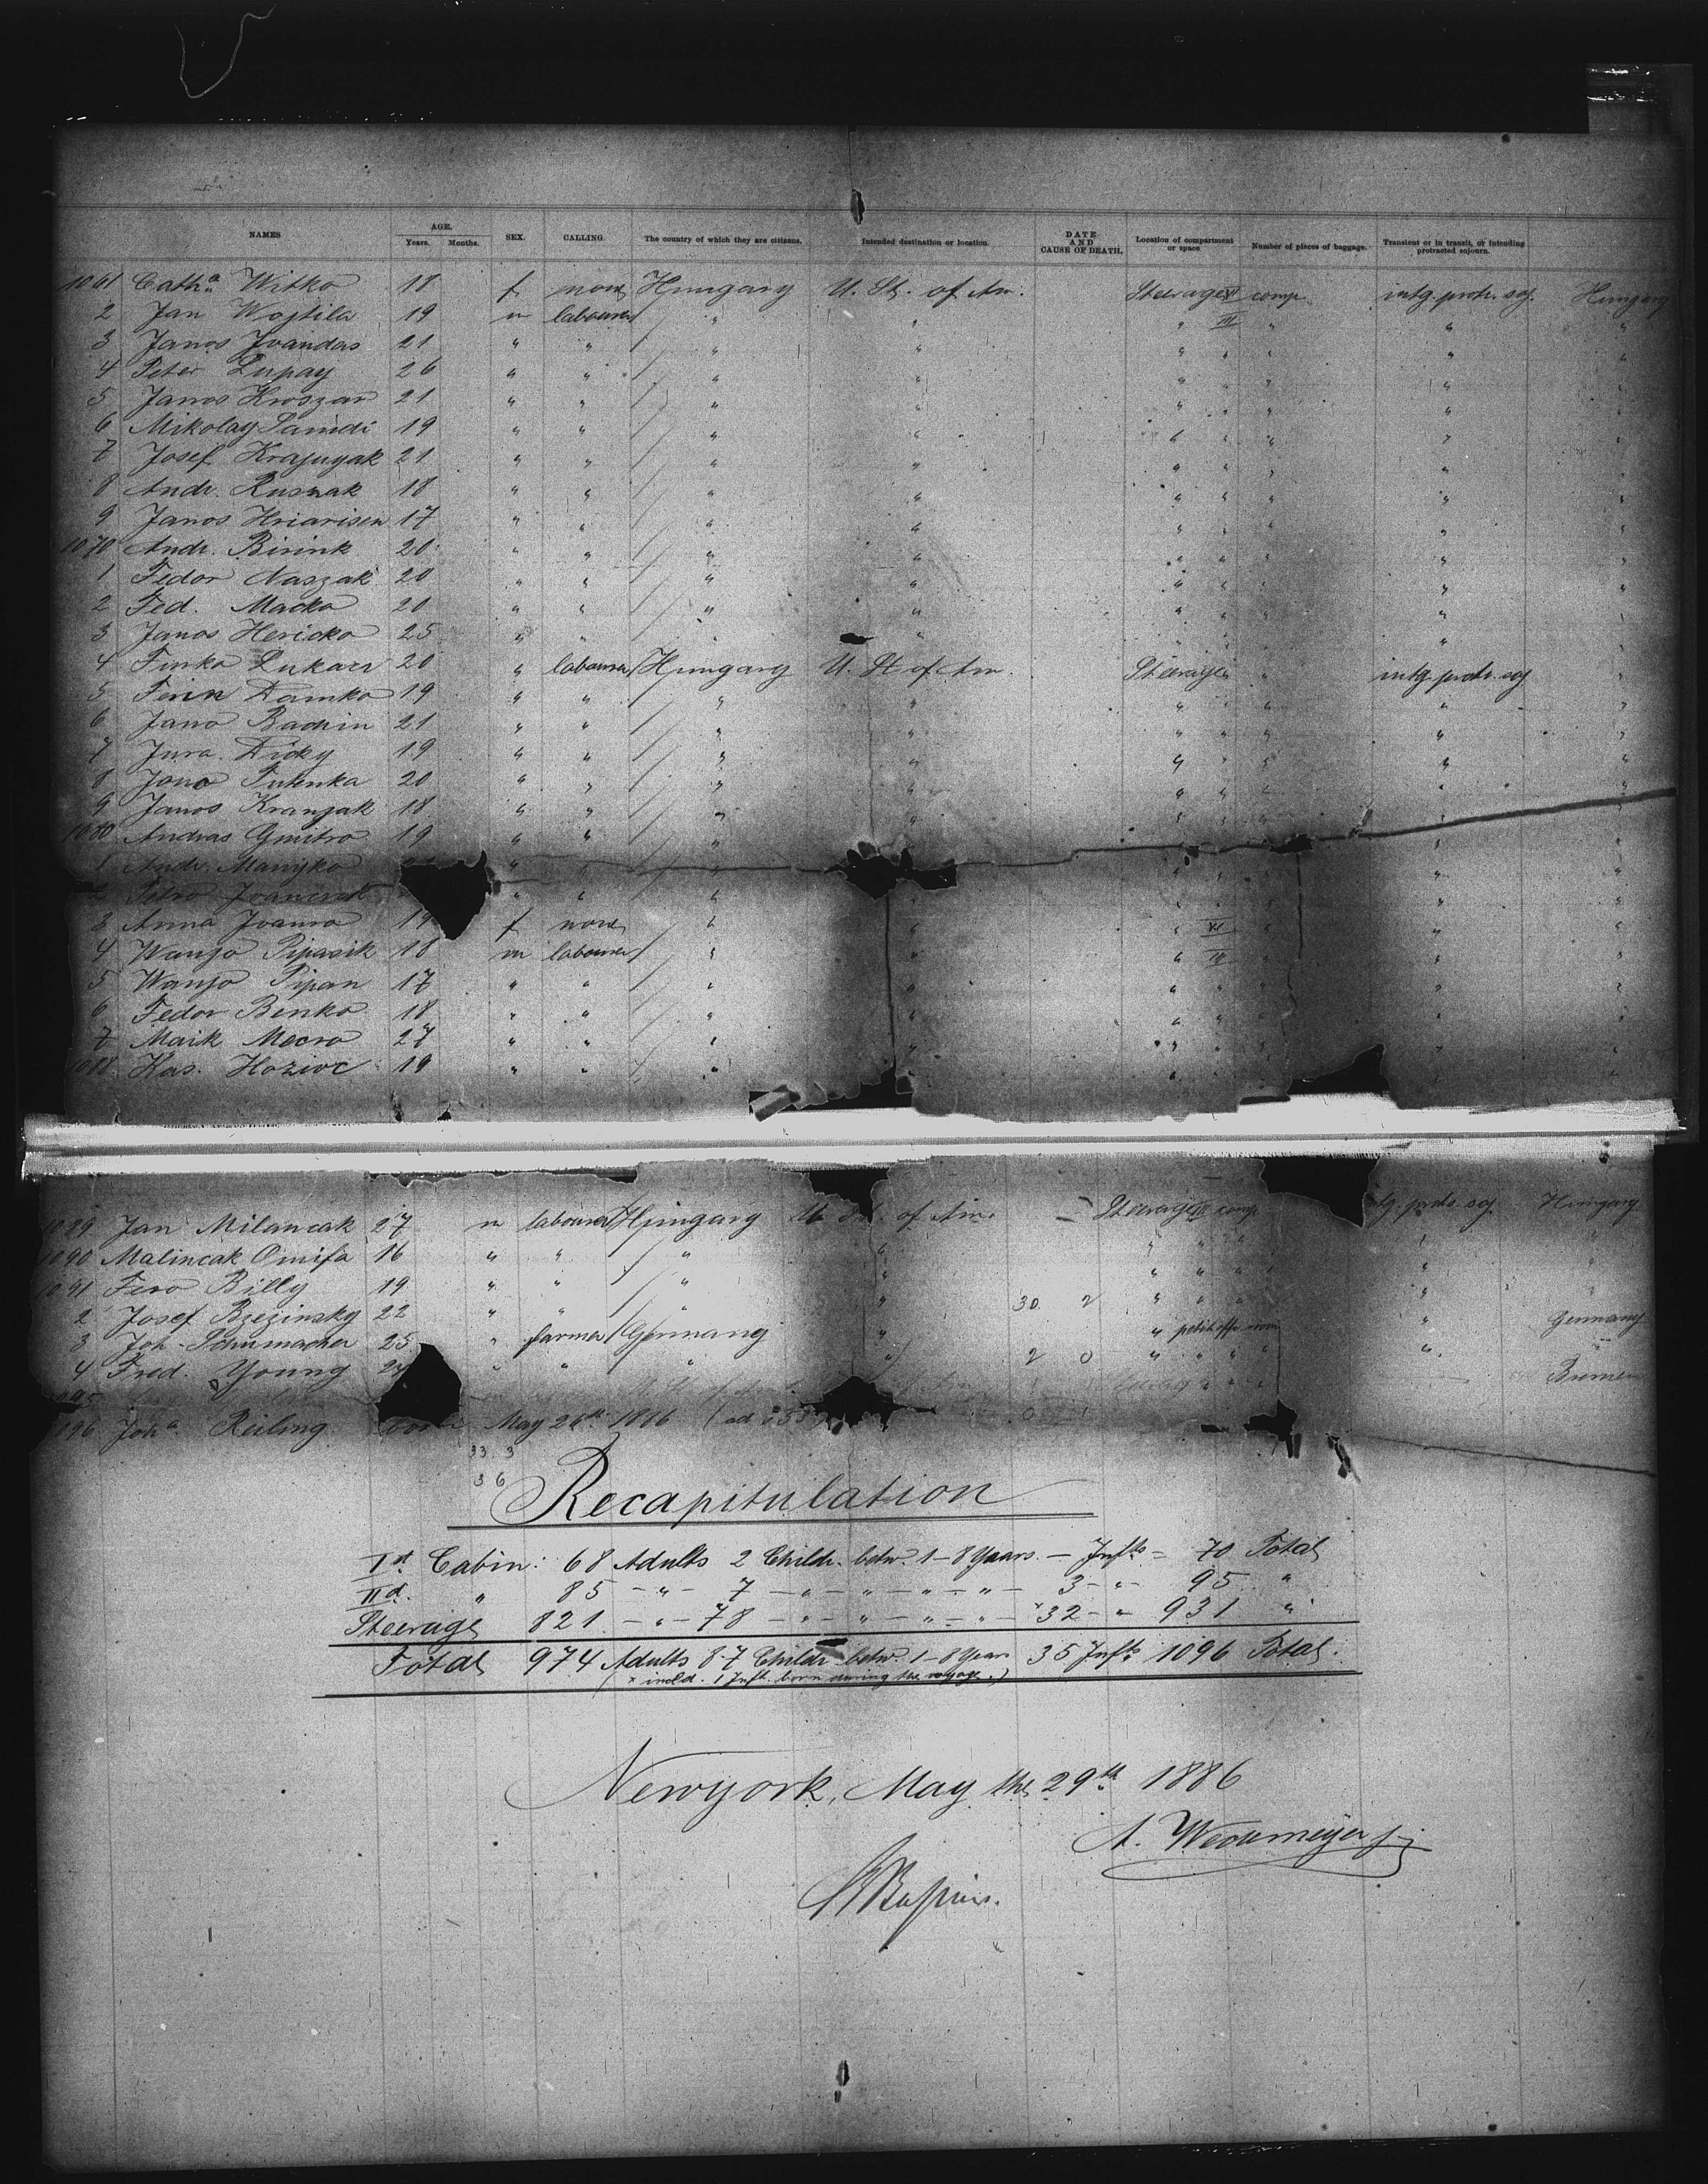 NAMES AGE. Years. Months. SEX. CALLING. The country of which they are citizens. Intended destination or location. DATE AND CAUSE OF DEATH. Location of compartment or space Number of pieces of baggage. Transient or in transit, or intending protracted sojourn.
1061 Cath.a Witko 18 f none Hungary U. St. of Am. Steerage VI comp. intg. protr. soj. Hungary
2 Jan Wojtila 19 m labourer " " " III " " "
3 Janos Jvandas 21 " " " " " " " " "
4 Peter Lupay 26 " " " " " " " " "
5 Janos Kroszar 21 " " " " " " " " "
6 Mikolay 19 " " " " " " " " "
7 Josef Krajnyak 21 " " " " " " " " "
8 Andr. Rusnak 18 " " " " " " " " "
9 Janos Hriarisen 17 " " " " " " " " "
1070 Andr. Birink 20 " " " " " " " " "
1 Fedor Naszak 20 " " " " " " " " "
2 Fed. Macko 20 " " " " " " " " "
3 Janos Hericko 25 " " " " " " " " "
4 Timko Lukacs 20 " labourer Hungary U. St of Am. Steerage " intg. protr. soj "
5 Damko 19 " " " " " " " " "
6 Jano Bachin 21 " " " " " " " " "
7 Jura Dicky 19 " " " " " " " " "
8 Jano Tutenka 20 " " " " " " " " "
9 Janos Kranjak 18 " " " " " " " " "
1080 Andras Gmitro 19 " " " " " " " " "
1 Andr. Manyko " " " " " " " " "
2 Petro " " " " " " " " "
3 Anna Jvanra 19 f none " " " VI " "
4 Wanjo Pipasik 18 m labourer " " " III " "
5 Wanjo Pipan 17 " " " " " " " " "
6 Fedor Benko 18 " " " " " " " " "
7 Maik Mecro 27 " " " " " " " " "
1088 Kas. Hozivc 19 " " " " " " " " "
1089 Jan Milancak 27 m labourer Hungary U. St. of Am. Steerage III comp. intg. protr. soj Hungary
1090 Malincak Onifa 16 " " " " " " " " "
1091 Fero Billy 19 " " " " " " " " "
2 Josef Brzezinsky 22 " " " " 30. 2 " " " "
3 Joh. Schumacher 25 " farmer Germany " " petit offs room " Germany
4 Fred. Young 24 " " " " 2 0 " " " " " Bremen
1095
1096 Joh.a Reiling born May 26th 1886 (ad 0
33. 3
36
Recapitulation
Ist Cabin: 68 Adults 2 Childr. betw. 1–8 Years. — Infts = 70 Total
IId. " 85 – " – 7 – " – " – " – " – 3 – " – 95 "
Steerage 821 – " – 78 – " – " – " – " – x32 – " 931 "
Total 974 Adults 87 Childr. betw. 1–8 Years 35 Infts 1096 Total.
(x incld. 1 Inft. born during the voyage.)
Newyork, May the 29th 1886
A. Wedemeyer jr